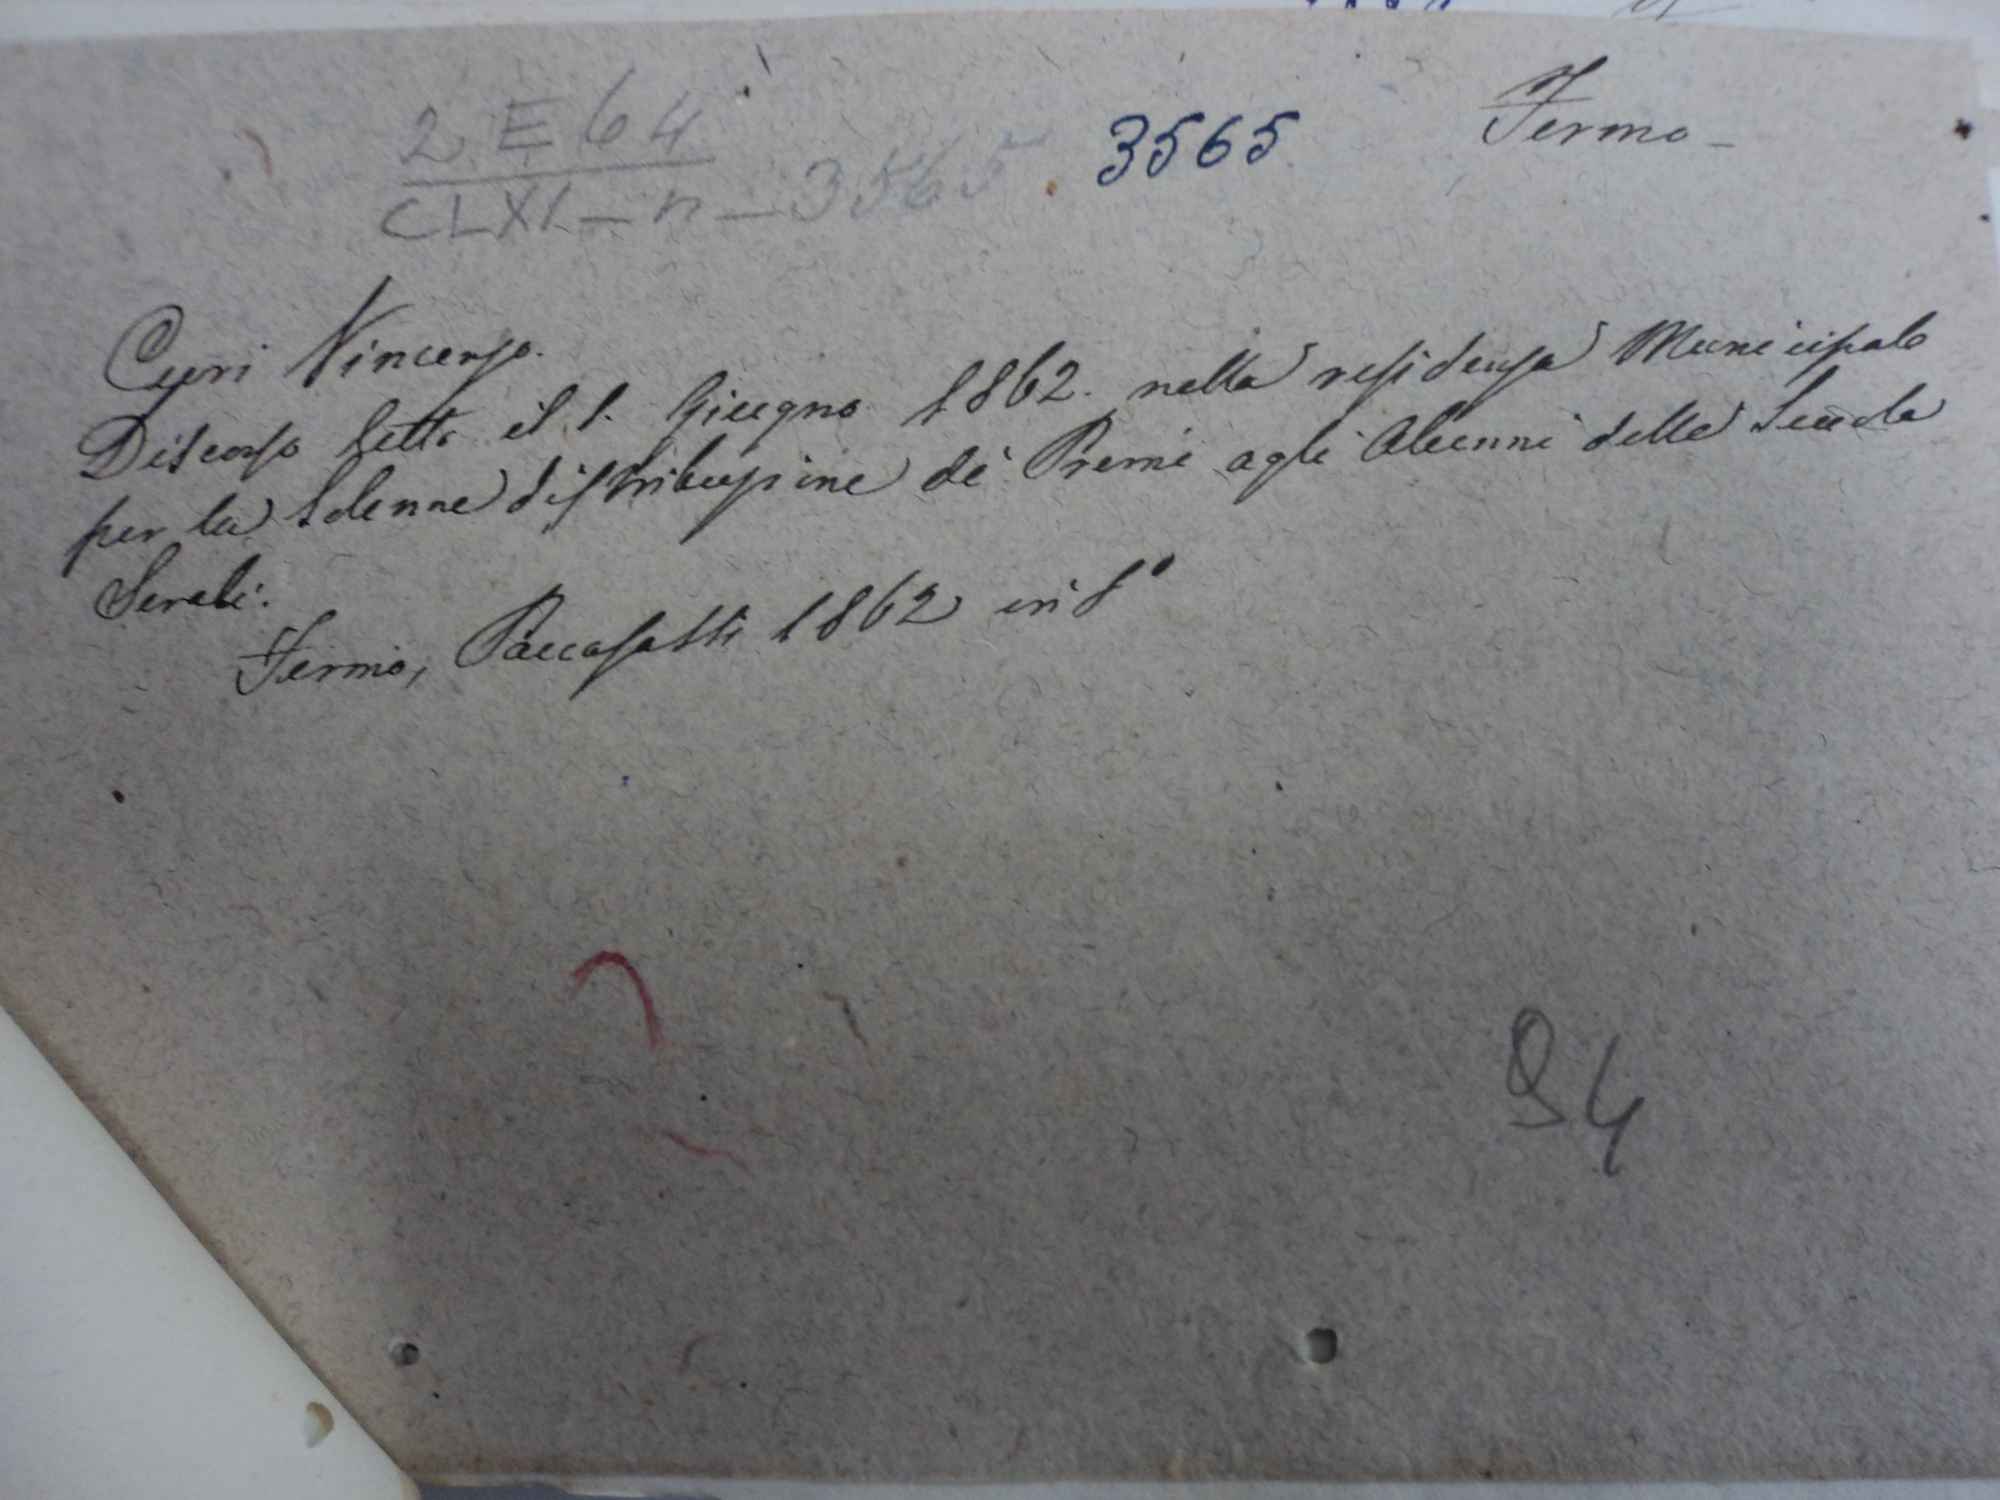 Fermo -
2 E 64
CLXI - n - 3565 3565
Curi Vincenzo.
Discorso letto il 1. Giugno 1862. nella residenza Municipale
per la solenne distribuzione de' Premi agli Alunni delle Scuole
Serali.
Fermo, Paccasassi 1862 in 8°
94